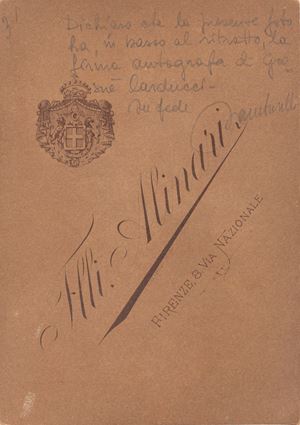 Dichiaro che la presente foto
ha, in basso al ritratto, la
firma autografa di Gio-
suè Carducci.
In fede
Flli. Alinari
FIRENZE, 8. VIA NAZIONALE